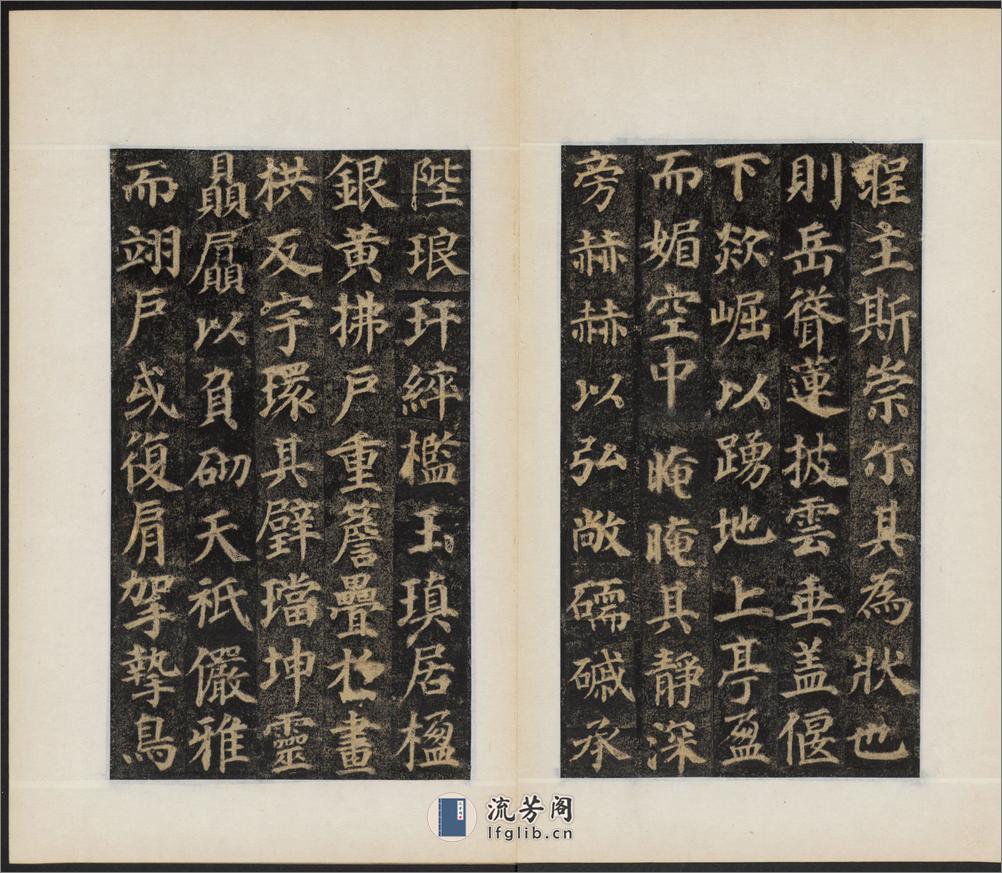 程主斯崇尔其為狀也
則岳聳蓮披雲垂盖偃
下欻崛以踴地上亭盈
而媚空中晻晻其静深
旁赫赫以弘敞礝磩承
陛琅玕綷檻玉瑱居楹
銀黄拂戶重簷疊於畫
栱反宇環其壁璫坤靈
贔屭以負砌天祇儼雅
而翊戶或復肩挐摯鳥
流芳阁
lfglib.cn